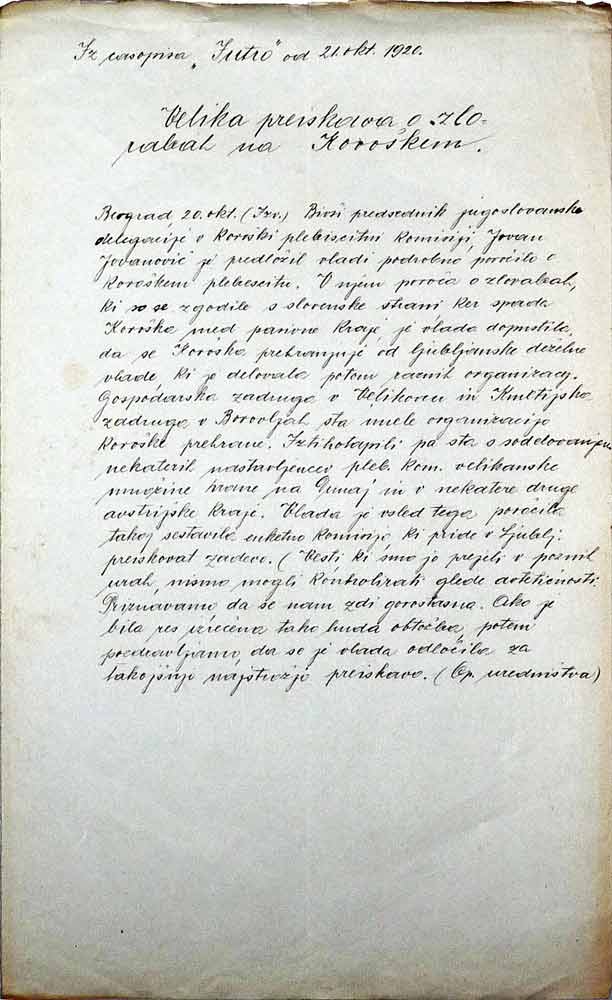 Iz časopisa „Jutro" od 21. okt. 1920.
Velika preiskava o zlo-
rabah na Koroškem.
Beograd, 20. okt. (Izv.) Bivši predsednik jugoslovanske
delegacije v koroški plebiscitni komisiji, Jovan
Jovanović je predložil vladi podrobno poročilo o
koroškem plebescitu. V njem poroča o zlorabah,
ki so se zgodile s slovenske strani ker spada
Koroška med pasivne kraje, je vlada dopustila,
da se Koroška prehranjuje od ljubljanske deželne
vlade ki je delovala potom raznih organizacij.
Gospodarska zadruga v Velikovcu in Kmetijska
zadruga v Borovljah sta imele organizacijo
koroške prehrane. Iztihotapili pa sta s sodelovanjem
nekaterih nastavljencev pleb. kom. velikanske
množine hrane na Dunaj in v nekatere druge
avstrijske kraje. Vlada je vsled tega poročila
takoj sestavila enketno komisijo ki pride v Ljublj.
preiskovat zadevo. (Vesti ki smo jo prejeli v poznih
urah, nismo mogli kontrolirati glede avtetičnosti.
Priznavamo da se nam zdi gorostasna. Ako je
bila res izrečena tako huda obtožba, potem
pozdravljamo, da se je vlada odločila za
takojšnjo najstrožjo preiskavo. (Op. uredništva)